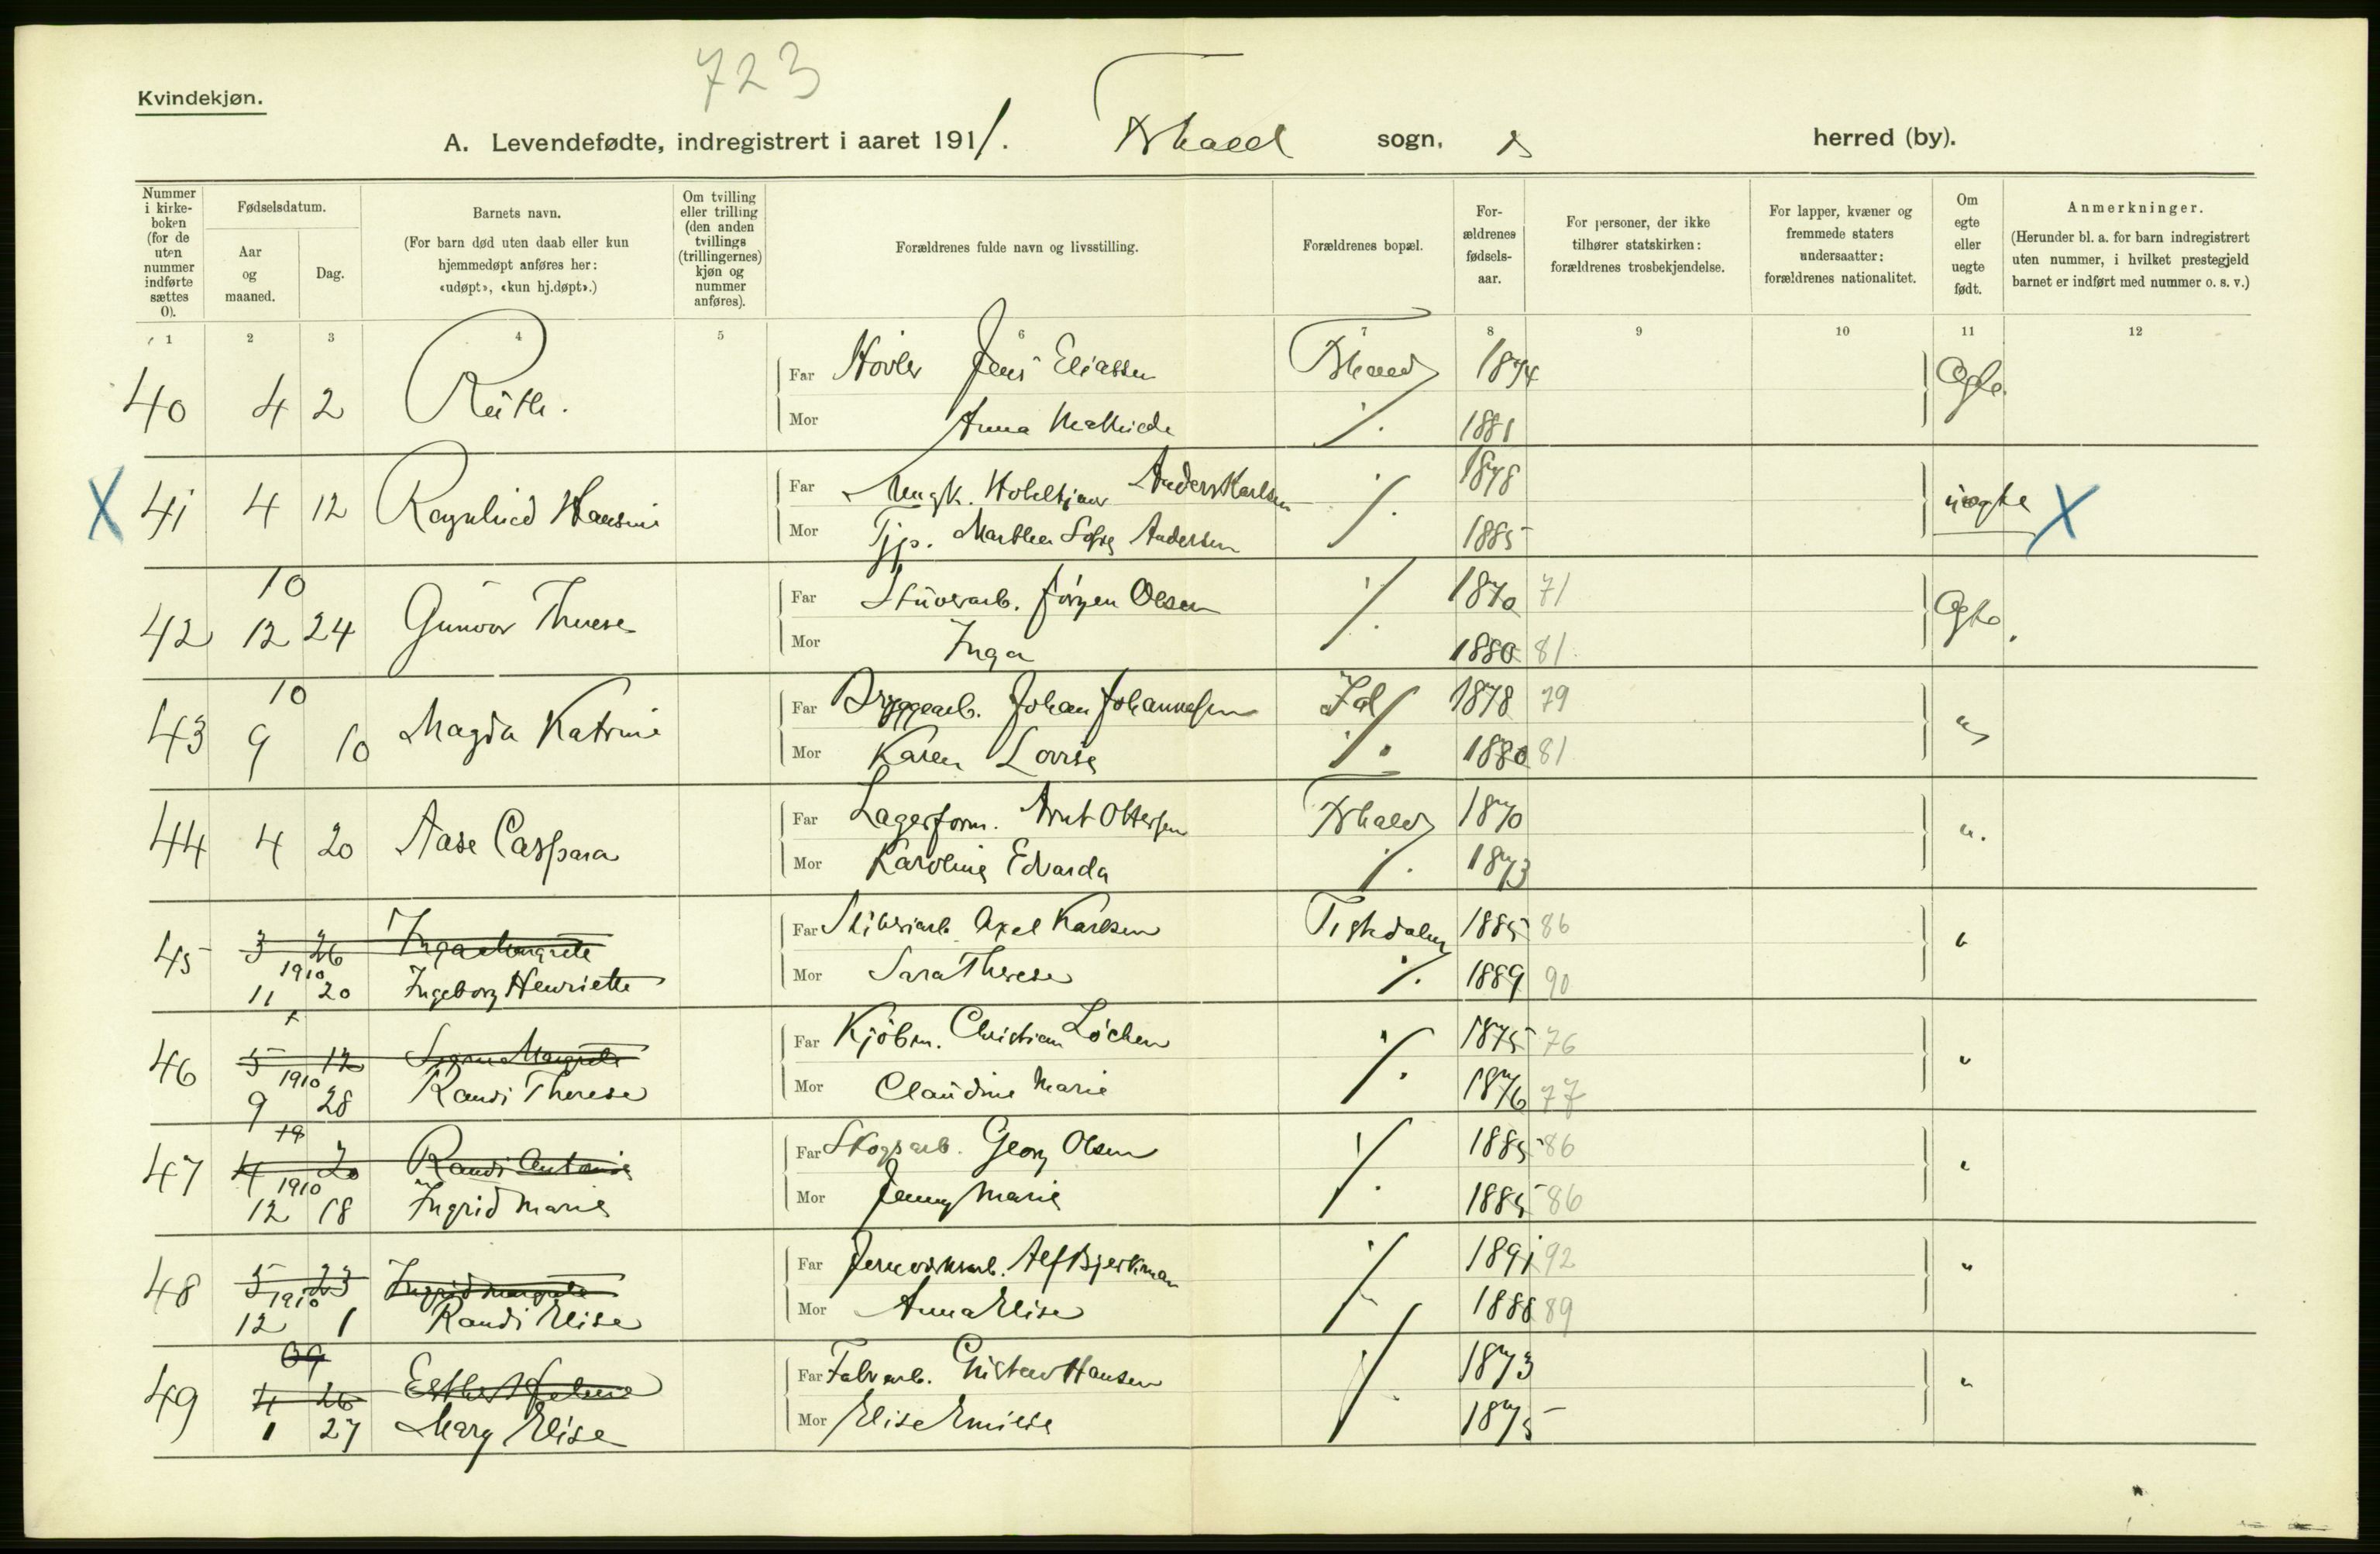 723
Kvindekjøn.
A. Levendefødte, indregistrert i aaret 1911. Frhald sogn, herred (by).
Nummer i kirke-boken (for de uten nummer indførte sættes 0).
Fødselsdatum.
Aar og maaned.
Dag.
Barnets navn.
(For barn død uten daab eller kun hjemmedøpt anføres her: «udøpt», «kun hj.døpt».)
Om tvilling eller trilling (den anden tvillings (trillingernes) kjøn og nummer anføres).
Forældrenes fulde navn og livsstilling.
Forældrenes bopæl.
For-ældrenes fødsels-aar.
For personer, der ikke tilhører statskirken: forældrenes trosbekjendelse.
For lapper, kvæner og fremmede staters undersaatter: forældrenes nationalitet.
Om egte eller uegte født.
Anmerkninger.
(Herunder bl. a. for barn indregistrert uten nummer, i hvilket prestegjeld barnet er indført med nummer o. s. v.)
1 2 3 4 5 6 7 8 9 10 11 12
40 4 2 Ruth. Far Høvler Jens Eliassen Frhald 1874 Egte.
Mor Anna Mathilde ./. 1881
X 41 4 12 Ragnhild Hansine Far Ungk. Anders Karlsen ./. 1878 uegte X
Mor Tjp. Marthea Sofie Andersen 1885
10
42 12 24 Gunvor Therese Far Stuverarb. Jörgen Olsen ./. 1870 71 Egte.
Mor Inga 1880 81
10
43 9 10 Magda Katrine Far Bryggearb. Johan Johannesen Id 1878 79 "
Mor Karen Lovise ./. 1880 81
44 4 20 Aase Caspara Far Lagerform. Arnt Ottersen Frhald 1870 ".
Mor Karoline Edvarda ./. 1873
45 3 26 Inga Margrete Far Sliberiarb Axel Karlsen Tistedalen 1885 86 "
1910
11 20 Ingeborg Henriette Mor Sara Therese ./. 1889 90
46 5 12 Signe Margrete Far Kjöbm. Christian Löchen ./. 1875 76 "
1910
9 28 Randi Therese Mor Claudine Marie 1876 77
47 4 20 Randi Antonie Far Skogsarb. Georg Olsen ./. 1885 86 "
1910
12 18 Ingrid Marie Mor Jenny Marie 1885 86
48 5 23 Ingrid Margrete Far Jernverksarb. Alf Bjerkman ./. 1891 92 "
1910
12 1 Randi Elise Mor Anna Elise 1888 89
09
49 4 26 Esther Far Fabrarb. Gustav Hansen ./. 1873 "
1 27 Mary Elise Mor Elise Emilie 1875